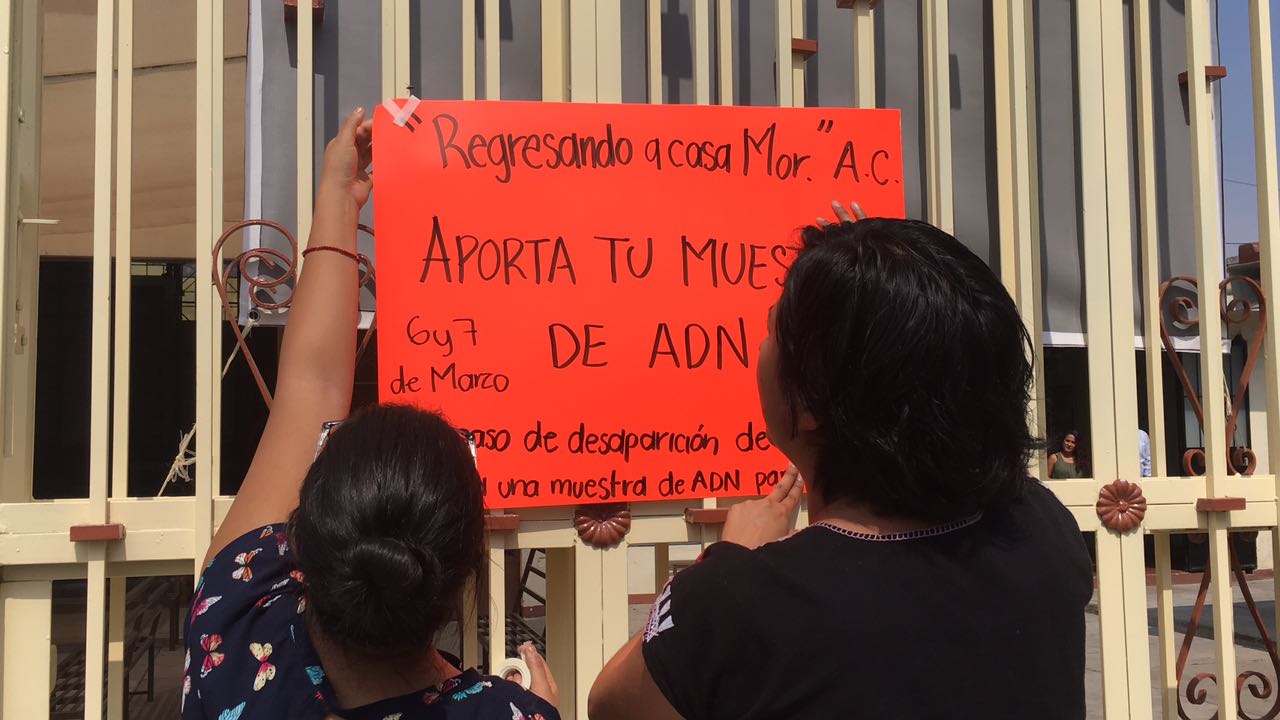 "Regresando a casa Mor." A.C.
APORTA TU MUES
DE ADN
6 y 7
de Marzo
caso de desaparición de
una muestra de ADN